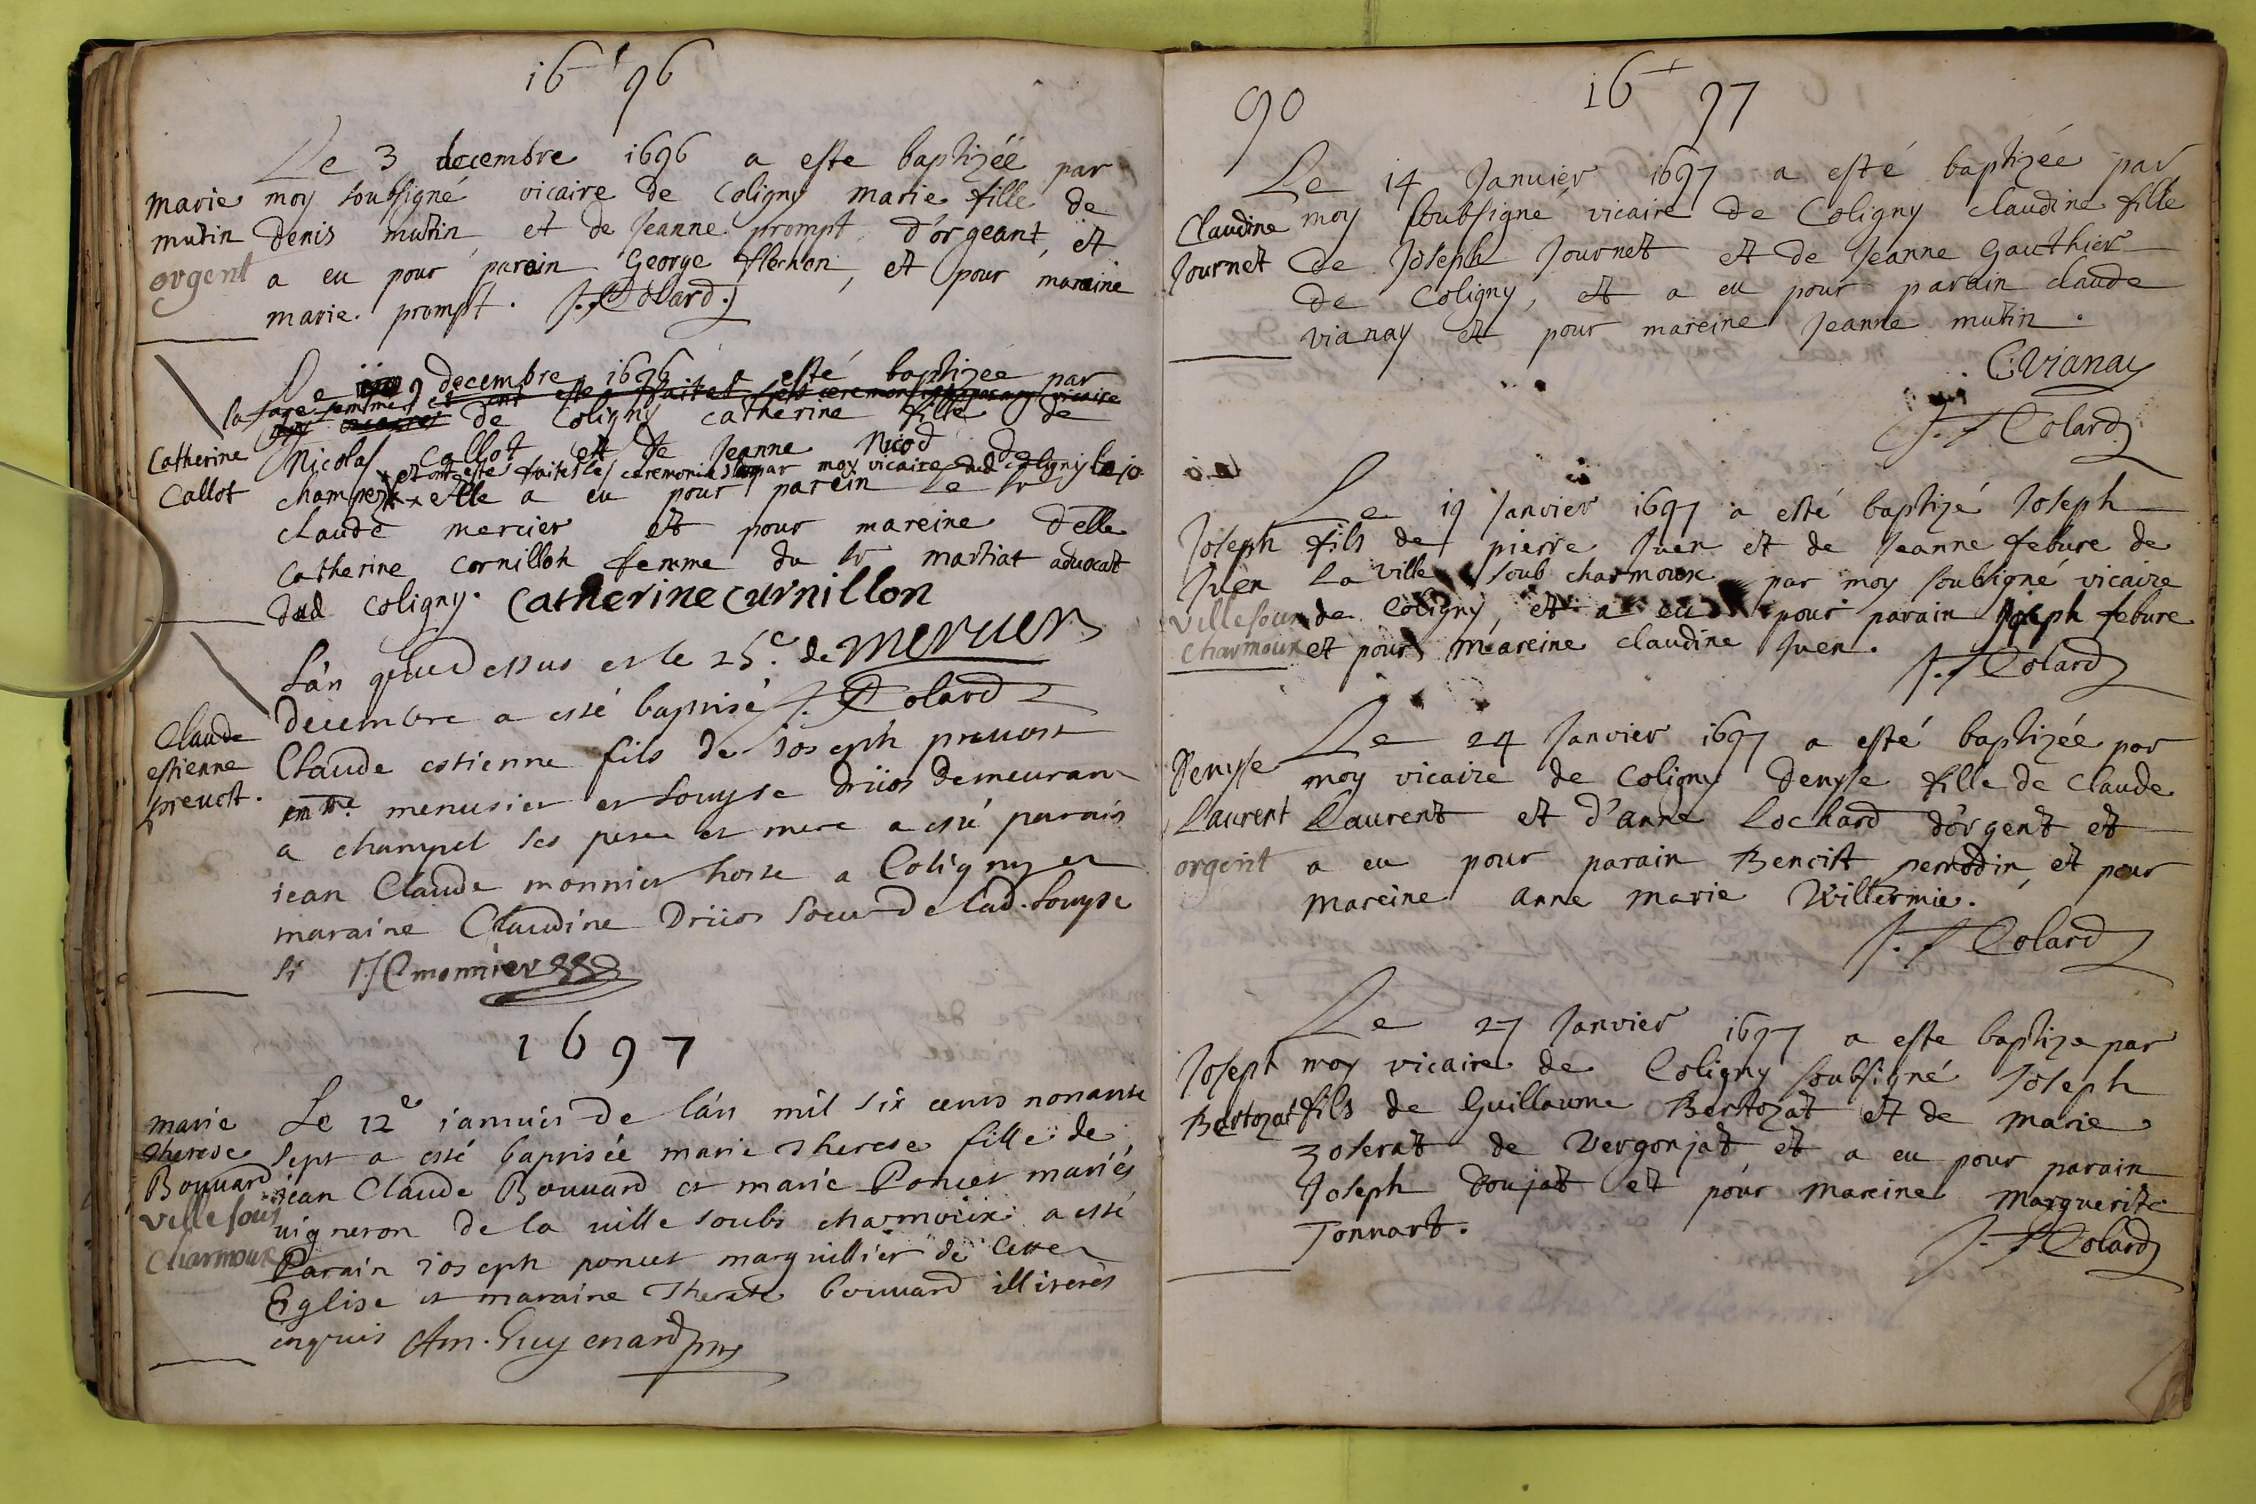 16 96
Le 3 decembre 1696 a este baptizée par
marie moy soubsigné vicaire de Coligny marie fille de
mutin denis mutin et de Jeanne prompt d'orgeant, et
orgent a eu pour parain George flechon, et pour maraine
marie prompt. J. F Colard
Le 9 decembre 1696 a esté baptizée par
la sage femme et ont esté faites les ceremonies par moy vicaire
de Coligny Catherine fille de
Catherine Nicolas Callot et de Jeanne Nicod de
et ont esté faites les ceremonies par moy vicaire dud coligny le jo
Callot champel elle a eu pour parein le sr
claude mercier et pour mareine delle
Catherine Cornillon femme du sr martiat advocat
dud Coligny. Catherine Curnillon
L'an que dessus et le 25e. de mercier
decembre a esté baptisé J. F Colard
Claude Claude estienne fils de Joseph prevost
estienne me. menusier et Louyse Driios demeurant
prevost. a champel ses pere et mere a esté parain
jean Claude monnier hoste a Coligny et
maraine Claudine Driios soeur de lad. Louyse
si J C monnier
1697
marie Le 12e janvier de l'an mil six cents nonante
Therese sept a esté baptisée marie Therese fille de
Bouvard jean Claude Bouvard et marie Poncet mariés
ville sous vigneron de la ville soubs charmoux a esté
Charmoux Parain Joseph poncet marguillier de Cette
Eglise et maraine Therese bouvard illiterés
enquis Am. Guyenard
90
16 97
Le 14 Janvier 1697 a esté baptizée par
Claudine moy soubsigné vicaire de Coligny claudine fille
Journet de Joseph Journet et de Jeanne Gauthier
de Coligny, et a eu pour parain claude
vianay et pour mareine Jeanne mutin.
C. Vianay
J. F Colard
Le 19 Janvier 1697 a esté baptizé Joseph
Joseph fils de pierre Juen et de Jeanne febure de
Juen La ville soub charmoux par moy soubsigné vicaire
Ville sous de Coligny, et a eu pour parain Joseph febure
Charmoux et pour mareine claudine Juen.
J. F Colard
Le 24 Janvier 1697 a esté baptizée par
Denyse moy vicaire de Coligny denyse fille de Claude
Laurent Laurent et d'anne Lochard d'orgent et
orgent a eu pour parain Benoist perrodin, et pour
mareine anne marie Willermie.
J. F Colard
Le 27 Janvier 1697 a este baptize par
Joseph moy vicaire de Coligny soubsigné Joseph
Bertozat fils de Guillaume Bertozat et de marie
Zoserat de Vergonjat et a eu pour parain
Joseph Doujat et pour mareine marguerite
Tonnart.
J. F Colard